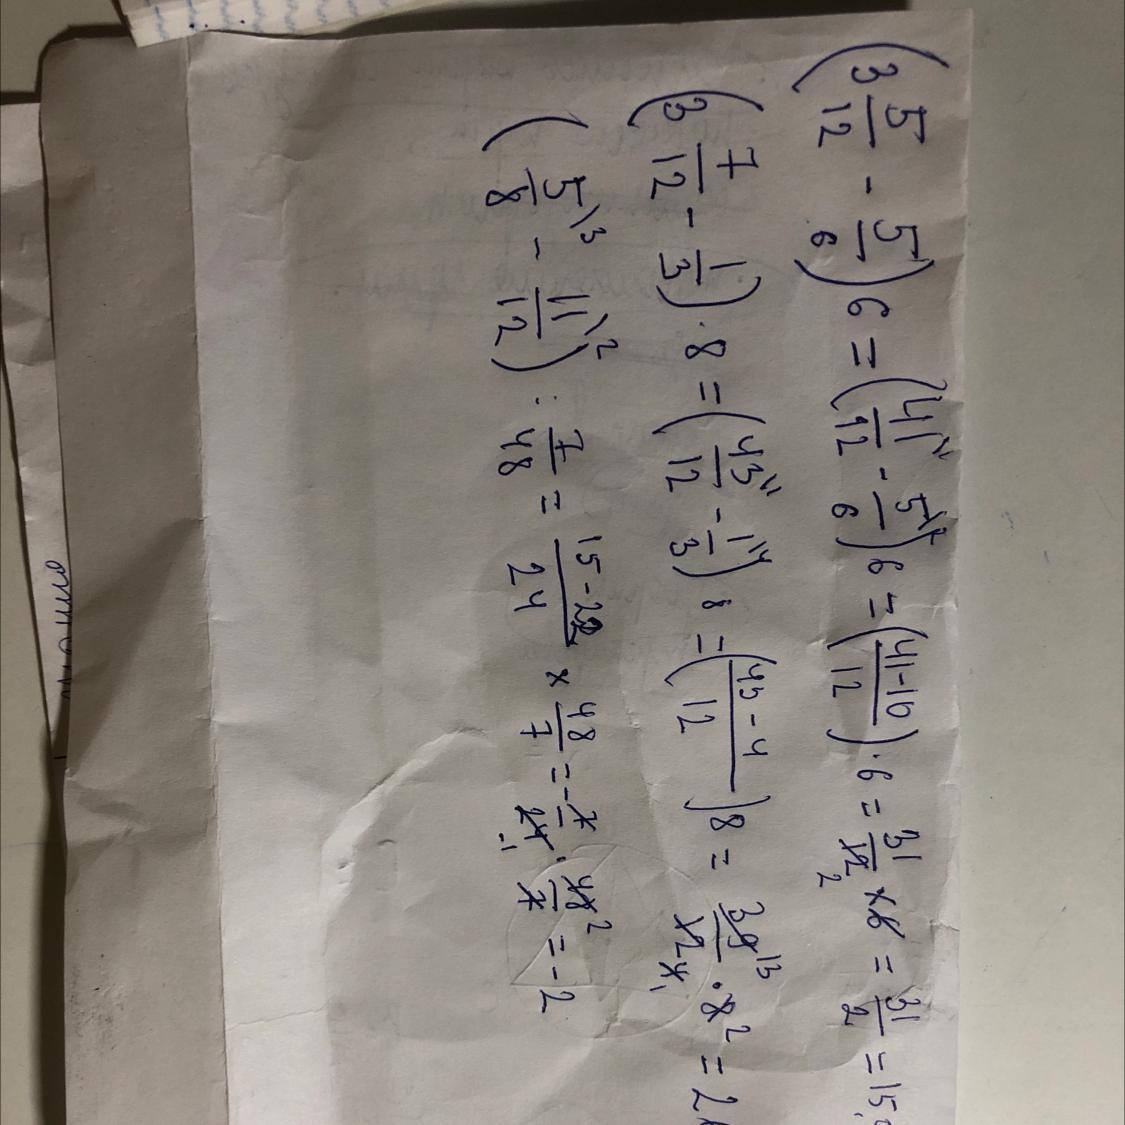 (3 5/12 - 5/6) 6 = (41/12 - 5\2/6) 6 = (41-10/12) · 6 = 31/12 2 × 6 = 31/2 = 15,
(3 7/12 - 1/3) · 8 = (43\1/12 - 1\4/3) 8 = (43-4/12) 8 = 39 13/12 4 1 · 8 2 = 2
(5\3/8 - 11\2/12) : 7/48 = 15-22/24 × 48/7 = -7/24 1 · 48 2/7 = -2